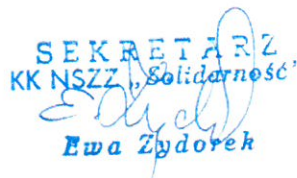 SEKRETARZ
KK NSZZ „Solidarność"
Ewa Zydorek